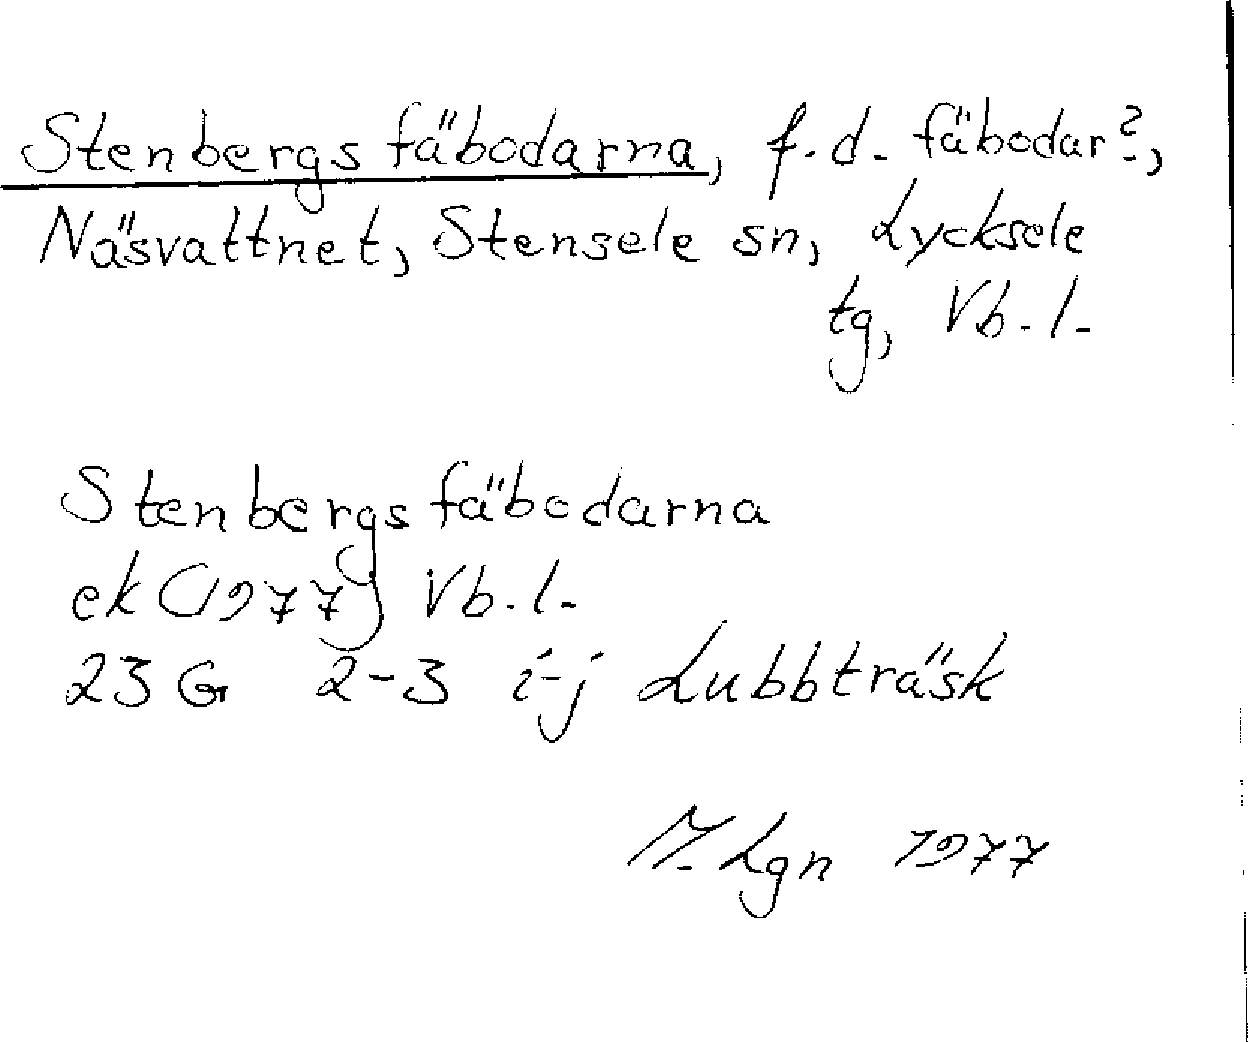 Stenbergsfäbodarna, f.d. fäbodar?,
Näsvattnet, Stensele sn, Lycksele
tg, Vb.l.
Stenbergsfäbodarna
ek (1977) Vb.l.
23 G 2-3 i-j Lubbträsk
M. Lgn 1977